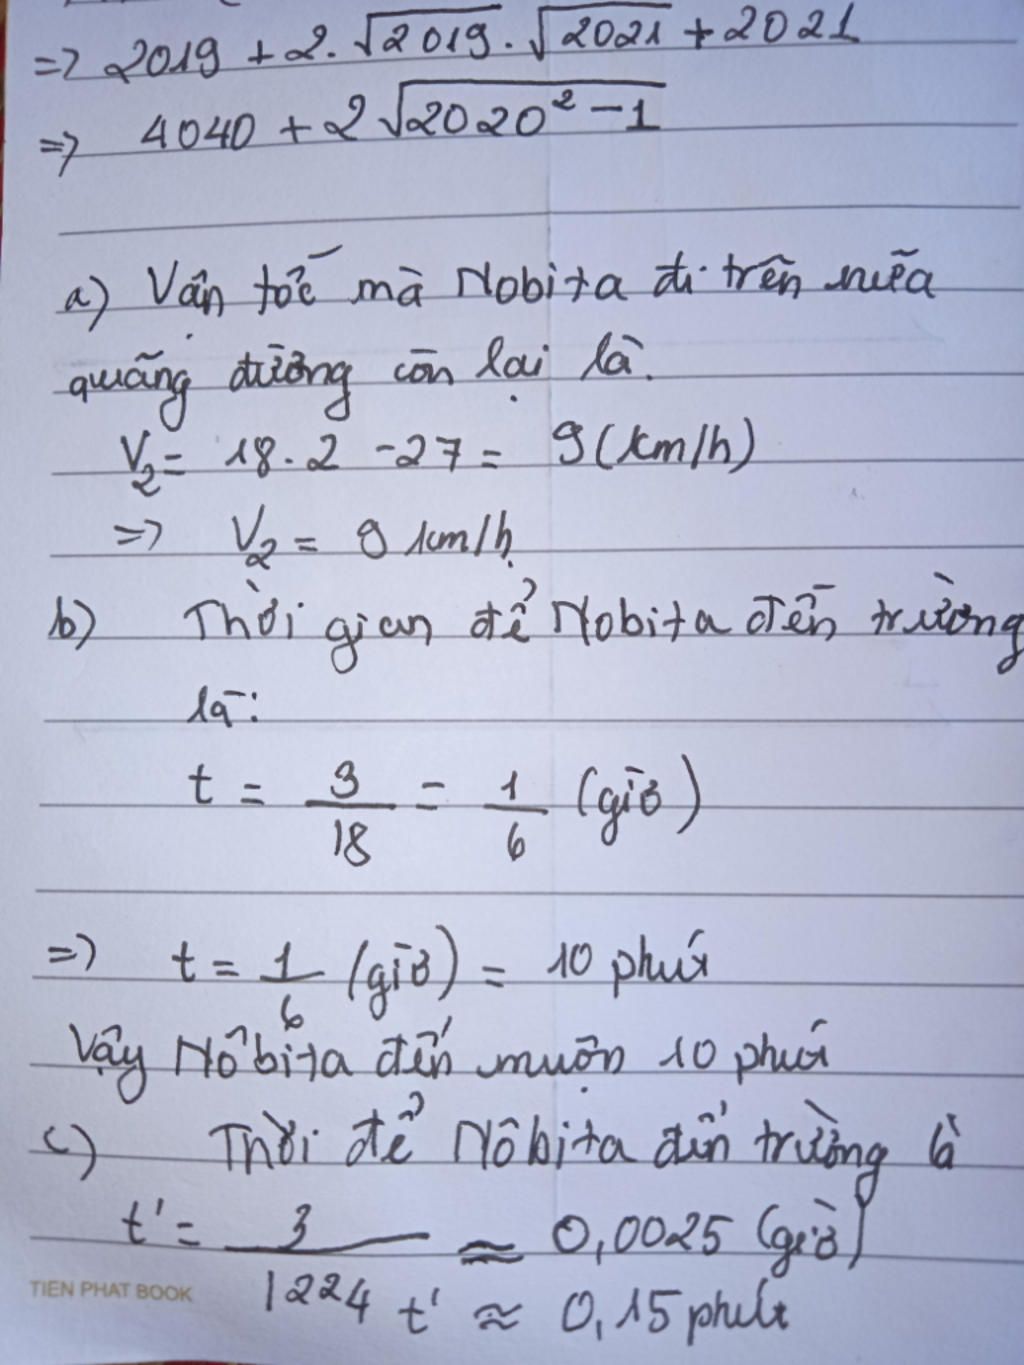 => 2019 + 2.√2019.√2021 + 2021
=> 4040 + 2√2020² - 1
a) Vận tốc mà Nobita đi trên nữa
quãng đường còn lại là.
V₂ = 18.2 - 27 = 9 (km/h)
=> V₂ = 9 km/h
b) Thời gian để Nobita đến trường
là:
t = 3/18 = 1/6 (giờ)
=> t = 1/6 (giờ) = 10 phút
Vậy Nôbita đến muộn 10 phút
c) Thời để Nôbita đến trường là
t' = 3/1224 ≈ 0,0025 (giờ)
TIEN PHAT BOOK t' ≈ 0,15 phút